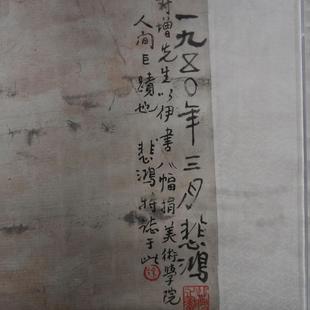 一九五〇年三月悲鴻
增先生以伊書八幅捐美術學院
人间巨蹟也 悲鴻特誌于此